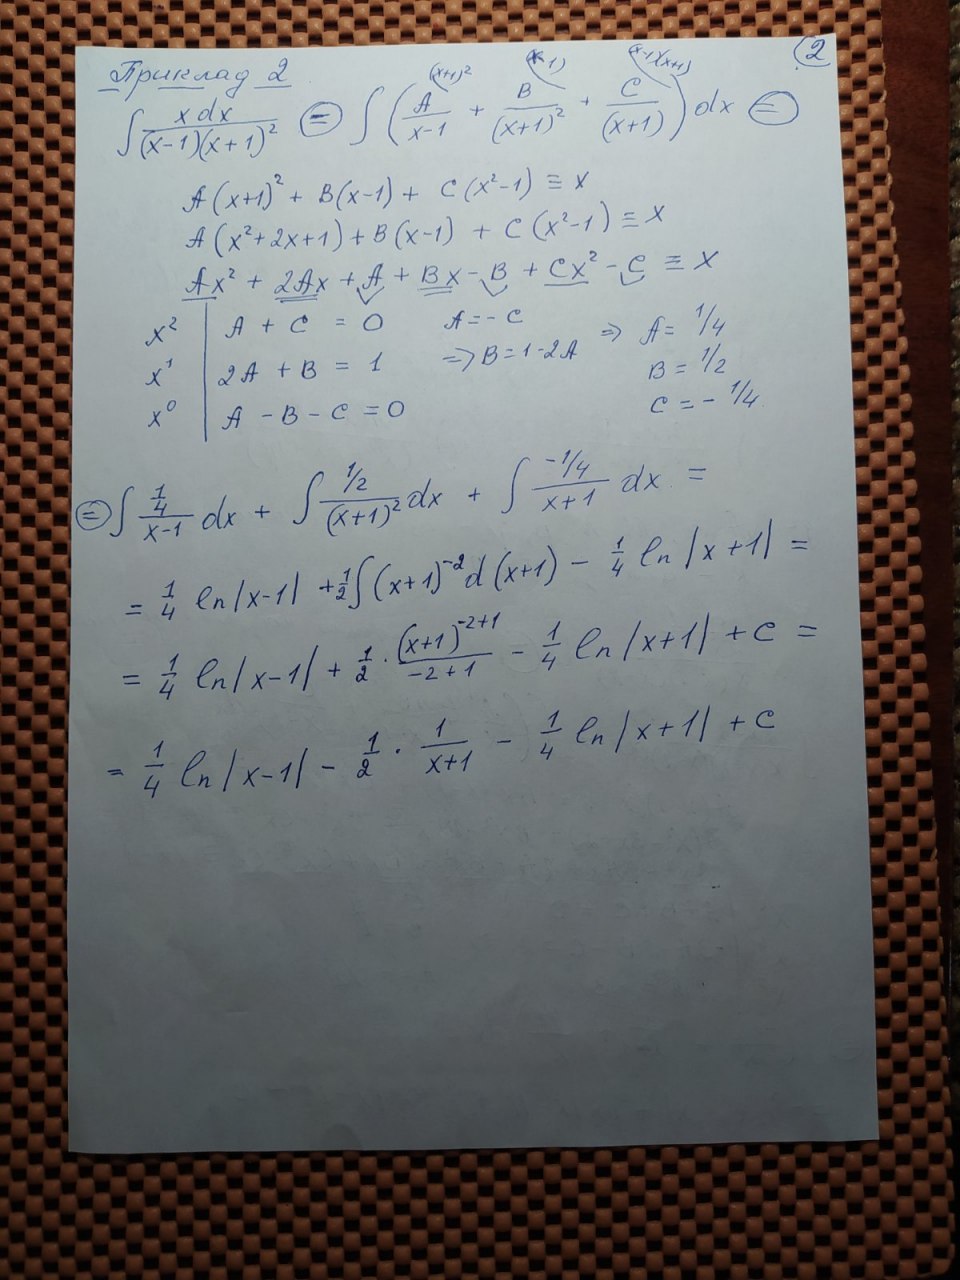 (2
Приклад 2
(x+1)² (x-1) (x-1)(x+1)
∫ x dx / (x-1)(x+1)² ⊜ ∫ ( A/(x-1) + B/(x+1)² + C/(x+1) ) dx ⊜
A(x+1)² + B(x-1) + C(x²-1) ≡ x
A(x²+2x+1) + B(x-1) + C(x²-1) ≡ x
Ax² + 2Ax + A + Bx - B + Cx² - C ≡ x
x² | A + C = 0 A = - C ⇒ A = 1/4
x¹ | 2A + B = 1 ⇒ B = 1-2A B = 1/2
x⁰ | A - B - C = 0 C = - 1/4
⊜ ∫ (1/4)/(x-1) dx + ∫ (1/2)/(x+1)² dx + ∫ (-1/4)/(x+1) dx =
= 1/4 ln|x-1| + 1/2 ∫ (x+1)⁻² d(x+1) - 1/4 ln|x+1| =
= 1/4 ln|x-1| + 1/2 · (x+1)⁻²⁺¹/(-2+1) - 1/4 ln|x+1| + C =
= 1/4 ln|x-1| - 1/2 · 1/(x+1) - 1/4 ln|x+1| + C